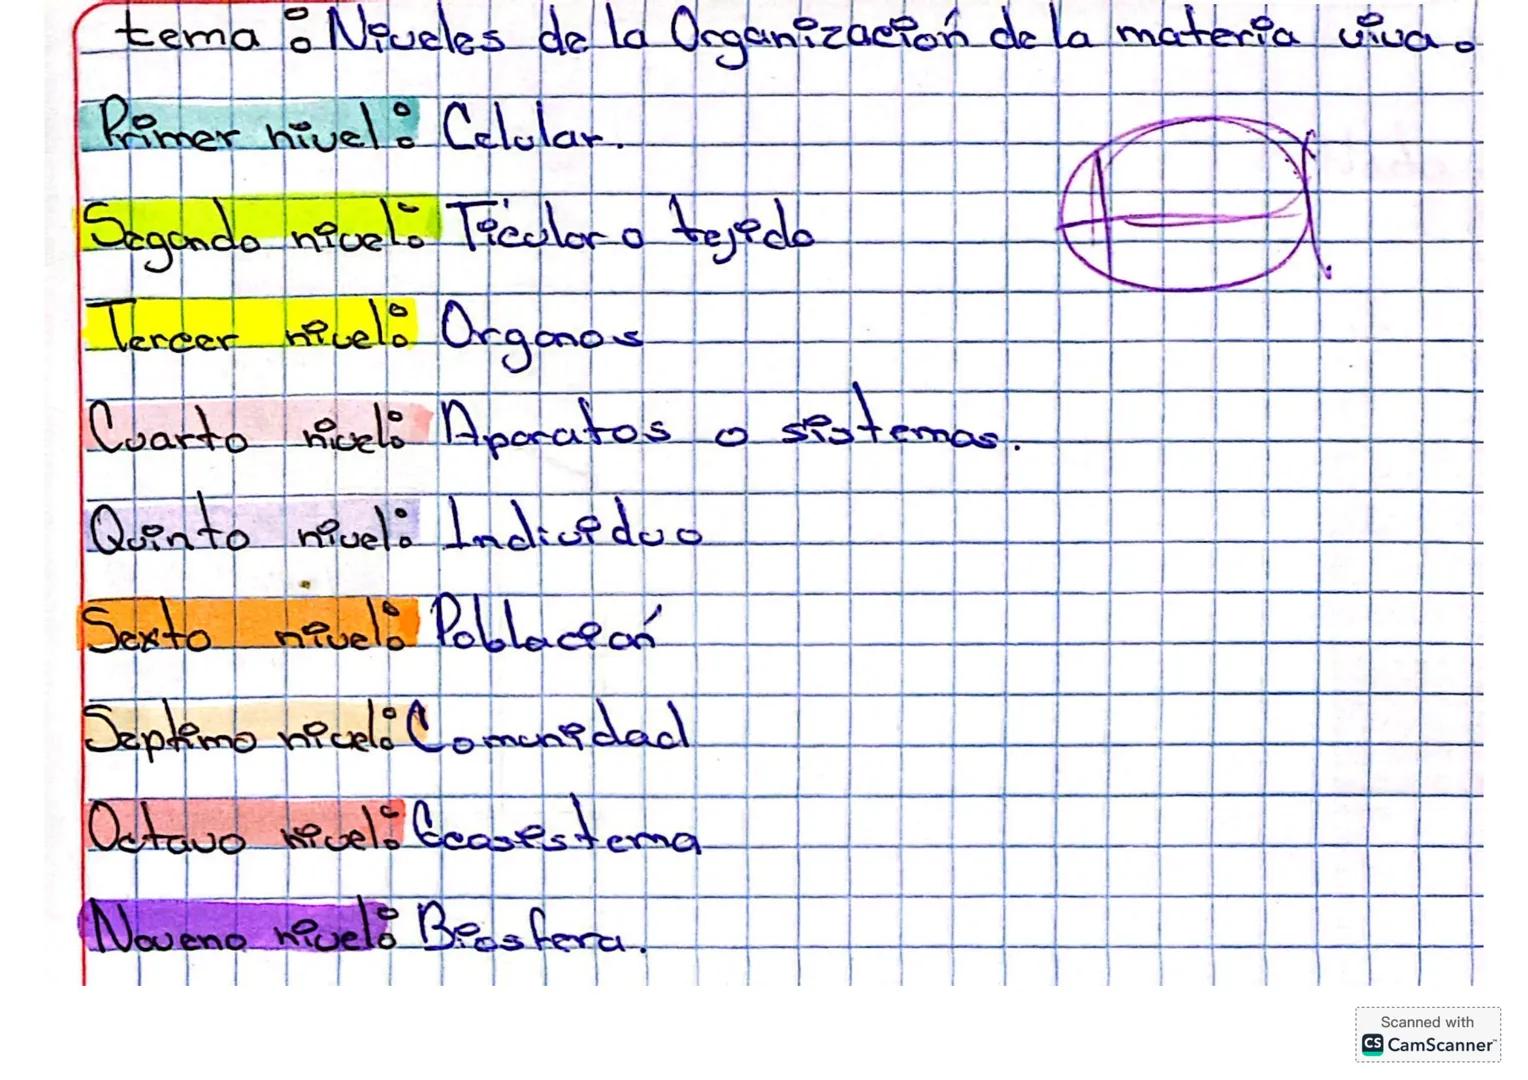 tema: Niveles de la Organización de la materia viva.
Primer nivel: Celular.
Segundo nivel: Ticular o tejido
Tercer nivel: Organos
Cuarto nivel: Aparatos o sistemas.
Quinto nivel: Individuo
Sexto nivel: Población
Septimo nivel: Comunidad
Octavo nivel: Ecosistema
Noveno nivel: Biosfera.
Scanned with
CS CamScanner